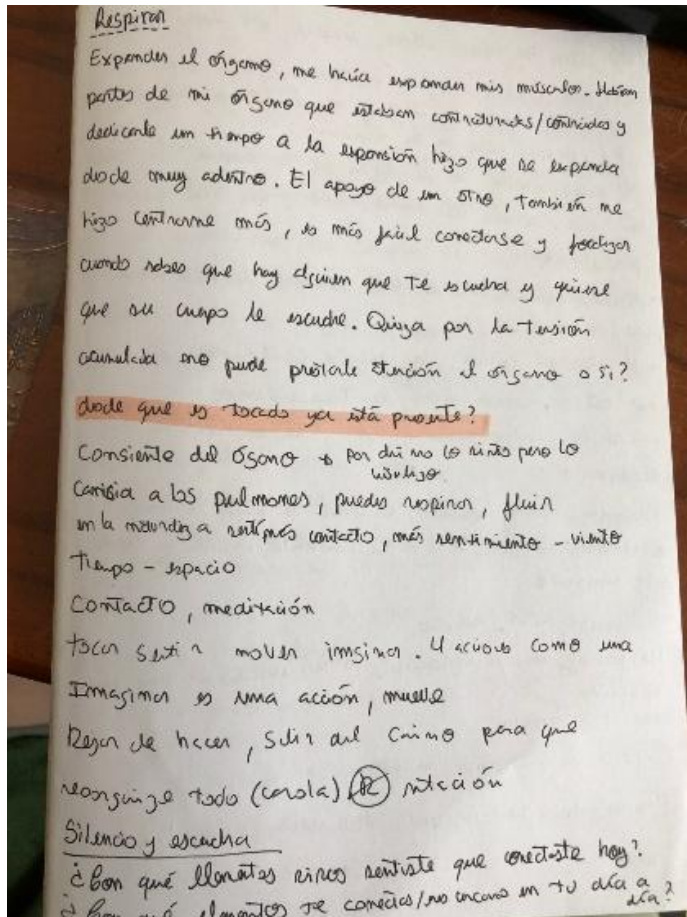 Respirar
Expander el órgano, me hacía expander mis músculos. Habían
partes de mi órgano que estaban contracturadas/contraidas y
dedicarle un tiempo a la expansión hizo que se expanda
desde muy adentro. El apoyo de un otro, también me
hizo centrarme más, es más fácil conectarse y focalizar
cuando sabes que hay alguien que te escucha y quiere
que su cuerpo le escuche. Quiza por la tensión
acumulada no pude prestarle atención al órgano o si?
desde que es tocado ya está presente?
Consiente del ósgano → Por ahí no lo sintes pero lo
visualizo.
Cambia a los pulmones, puedes respirar, fluir
en la naturaleza sentí más contacto, más sentimiento - viento
Tiempo - espacio
Contacto, meditación
tocar sentir mover imaginar. 4 acciones como una
Imaginar es una acción, mueve
Dejar de hacer, salir del camino para que
reorganize todo (carola) (R) rotación
Silencio y escucha
¿Con qué elementos sentiste que conectaste hoy?
¿Con qué elementos te conectas/no en tu día a
día?